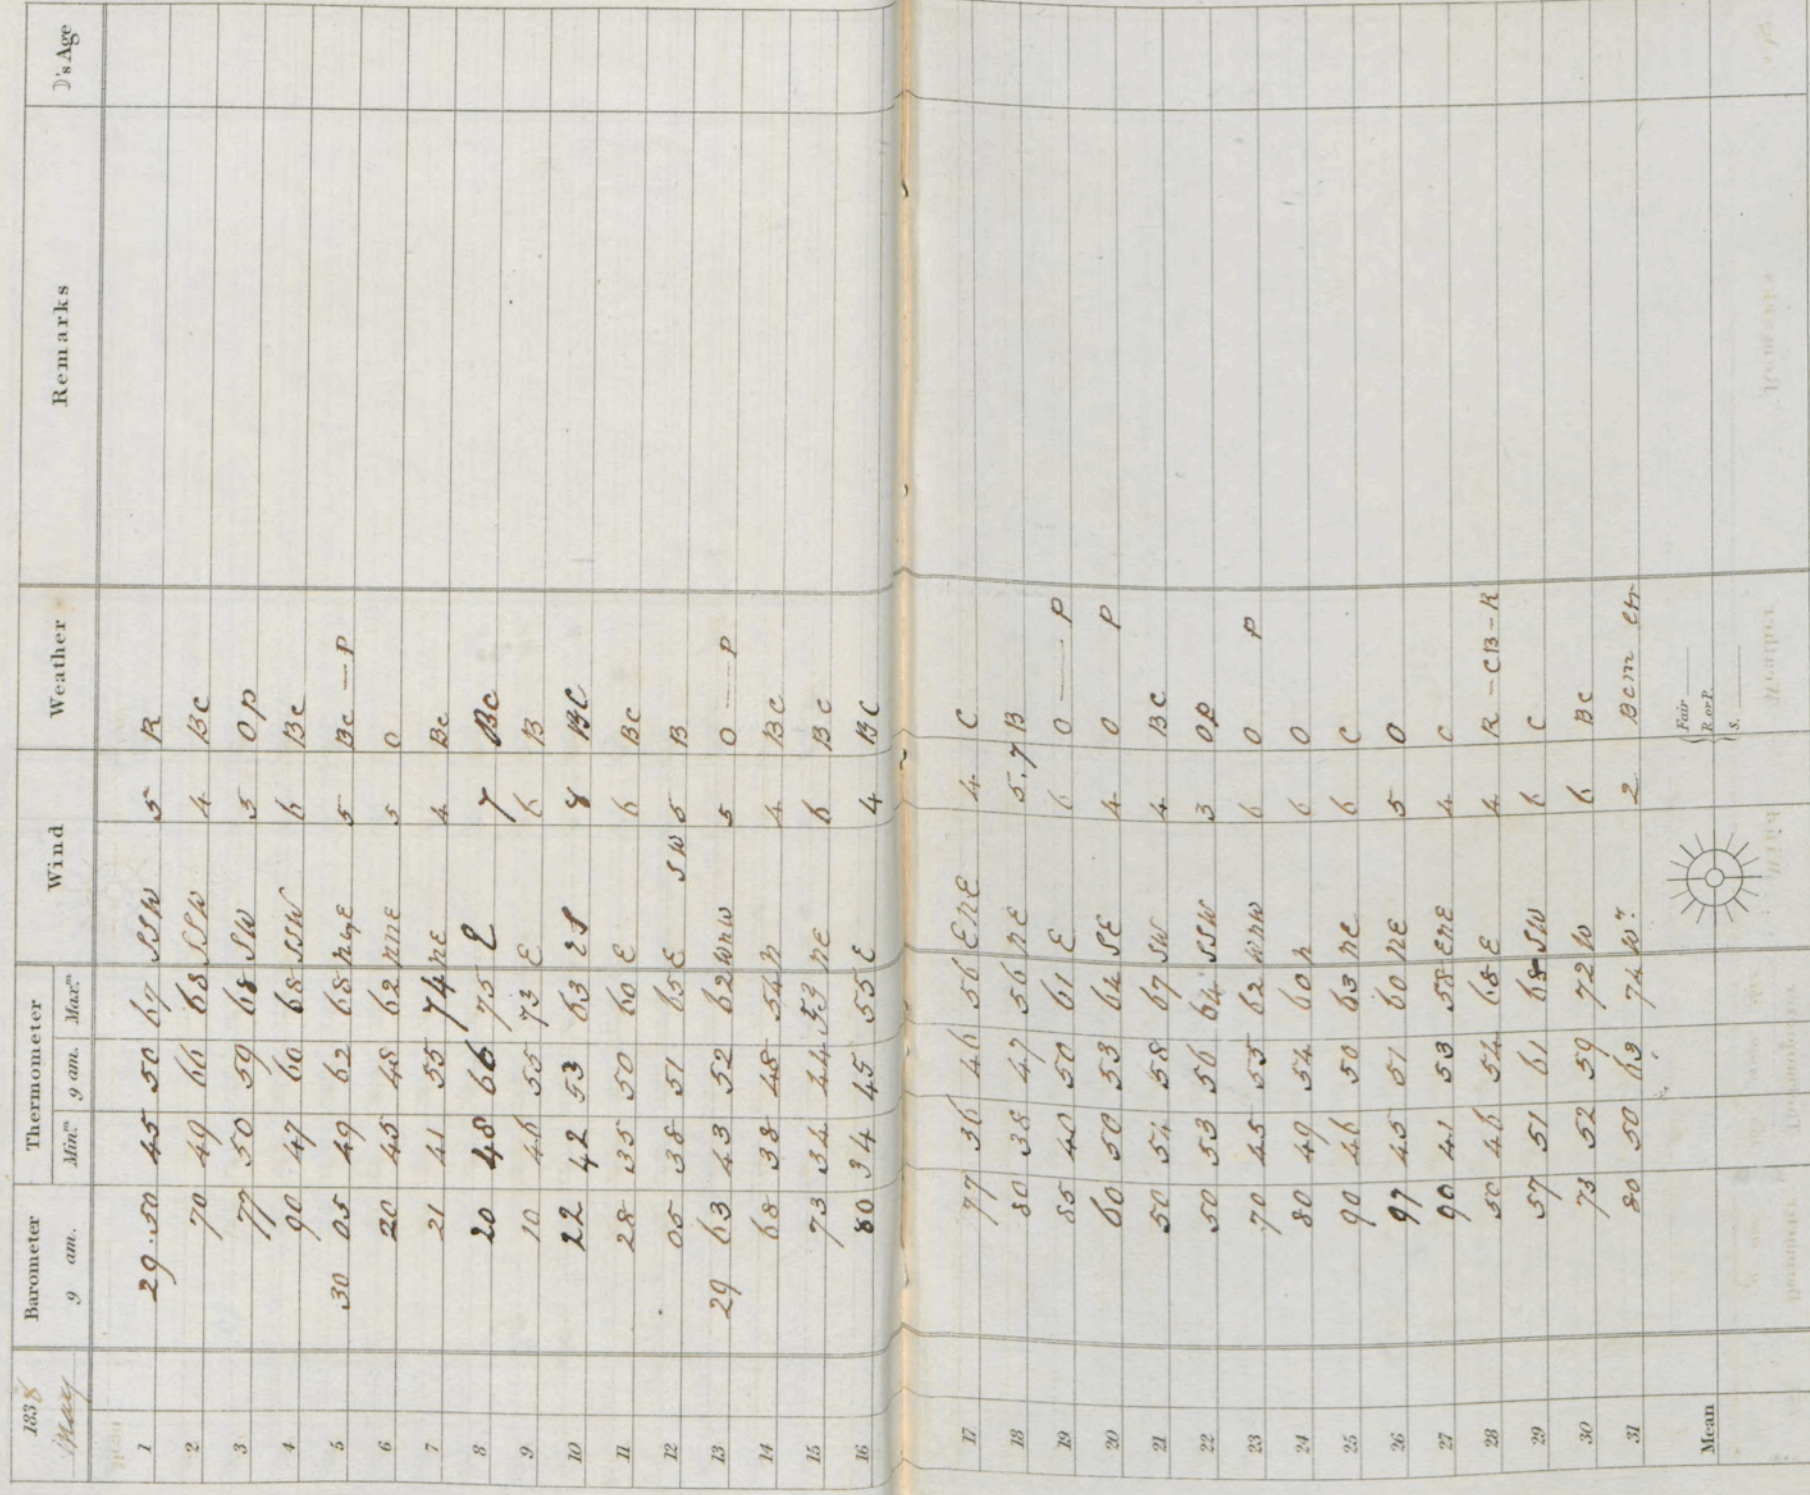 1838 Barometer Thermometer Wind Weather Remarks ☽'s Age
May 9 am. Min.m 9 am. Max.m
1 29.50 45 50 67 SSW 5 R
2 70 49 66 68 SSW 4 BC
3 77 50 59 68 SW 5 OP
4 90 47 60 68 SSW 6 Bc
5 30 05 49 62 68 NbyE 5 Bc — P
6 20 45 48 62 NNE 5 O
7 21 41 55 74 NE 4 Bc
8 20 48 66 75 E 7 Bc
9 10 46 55 73 E 6 B
10 22 42 53 63 ES 8 BC
11 28 35 50 60 E 6 BC
12 05 38 51 65 E SW 5 B
13 29 63 43 52 62 WNW 5 O — P
14 68 38 48 54 N 4 BC
15 73 34 44 53 NE 6 BC
16 80 34 45 55 E 4 BC
17 77 36 46 56 ENE 4 C
18 80 38 47 56 NE 5.7 B
19 85 40 50 61 E 6 O — P
20 60 50 53 64 SE 4 O P
21 50 54 58 67 SW 4 BC
22 50 53 56 64 SSW 3 OP
23 70 45 55 62 WNW 6 O P
24 80 49 54 60 N 6 O
25 90 46 50 63 NE 6 C
26 97 45 51 60 NE 5 O
27 90 41 53 58 ENE 4 C
28 50 46 54 68 E 4 R - CB - R
29 57 51 61 68 SW 6 C
30 73 52 59 72 W 6 BC
31 80 50 63 74 W? 2 Bcm
Mean Fair
R. or P.
S.